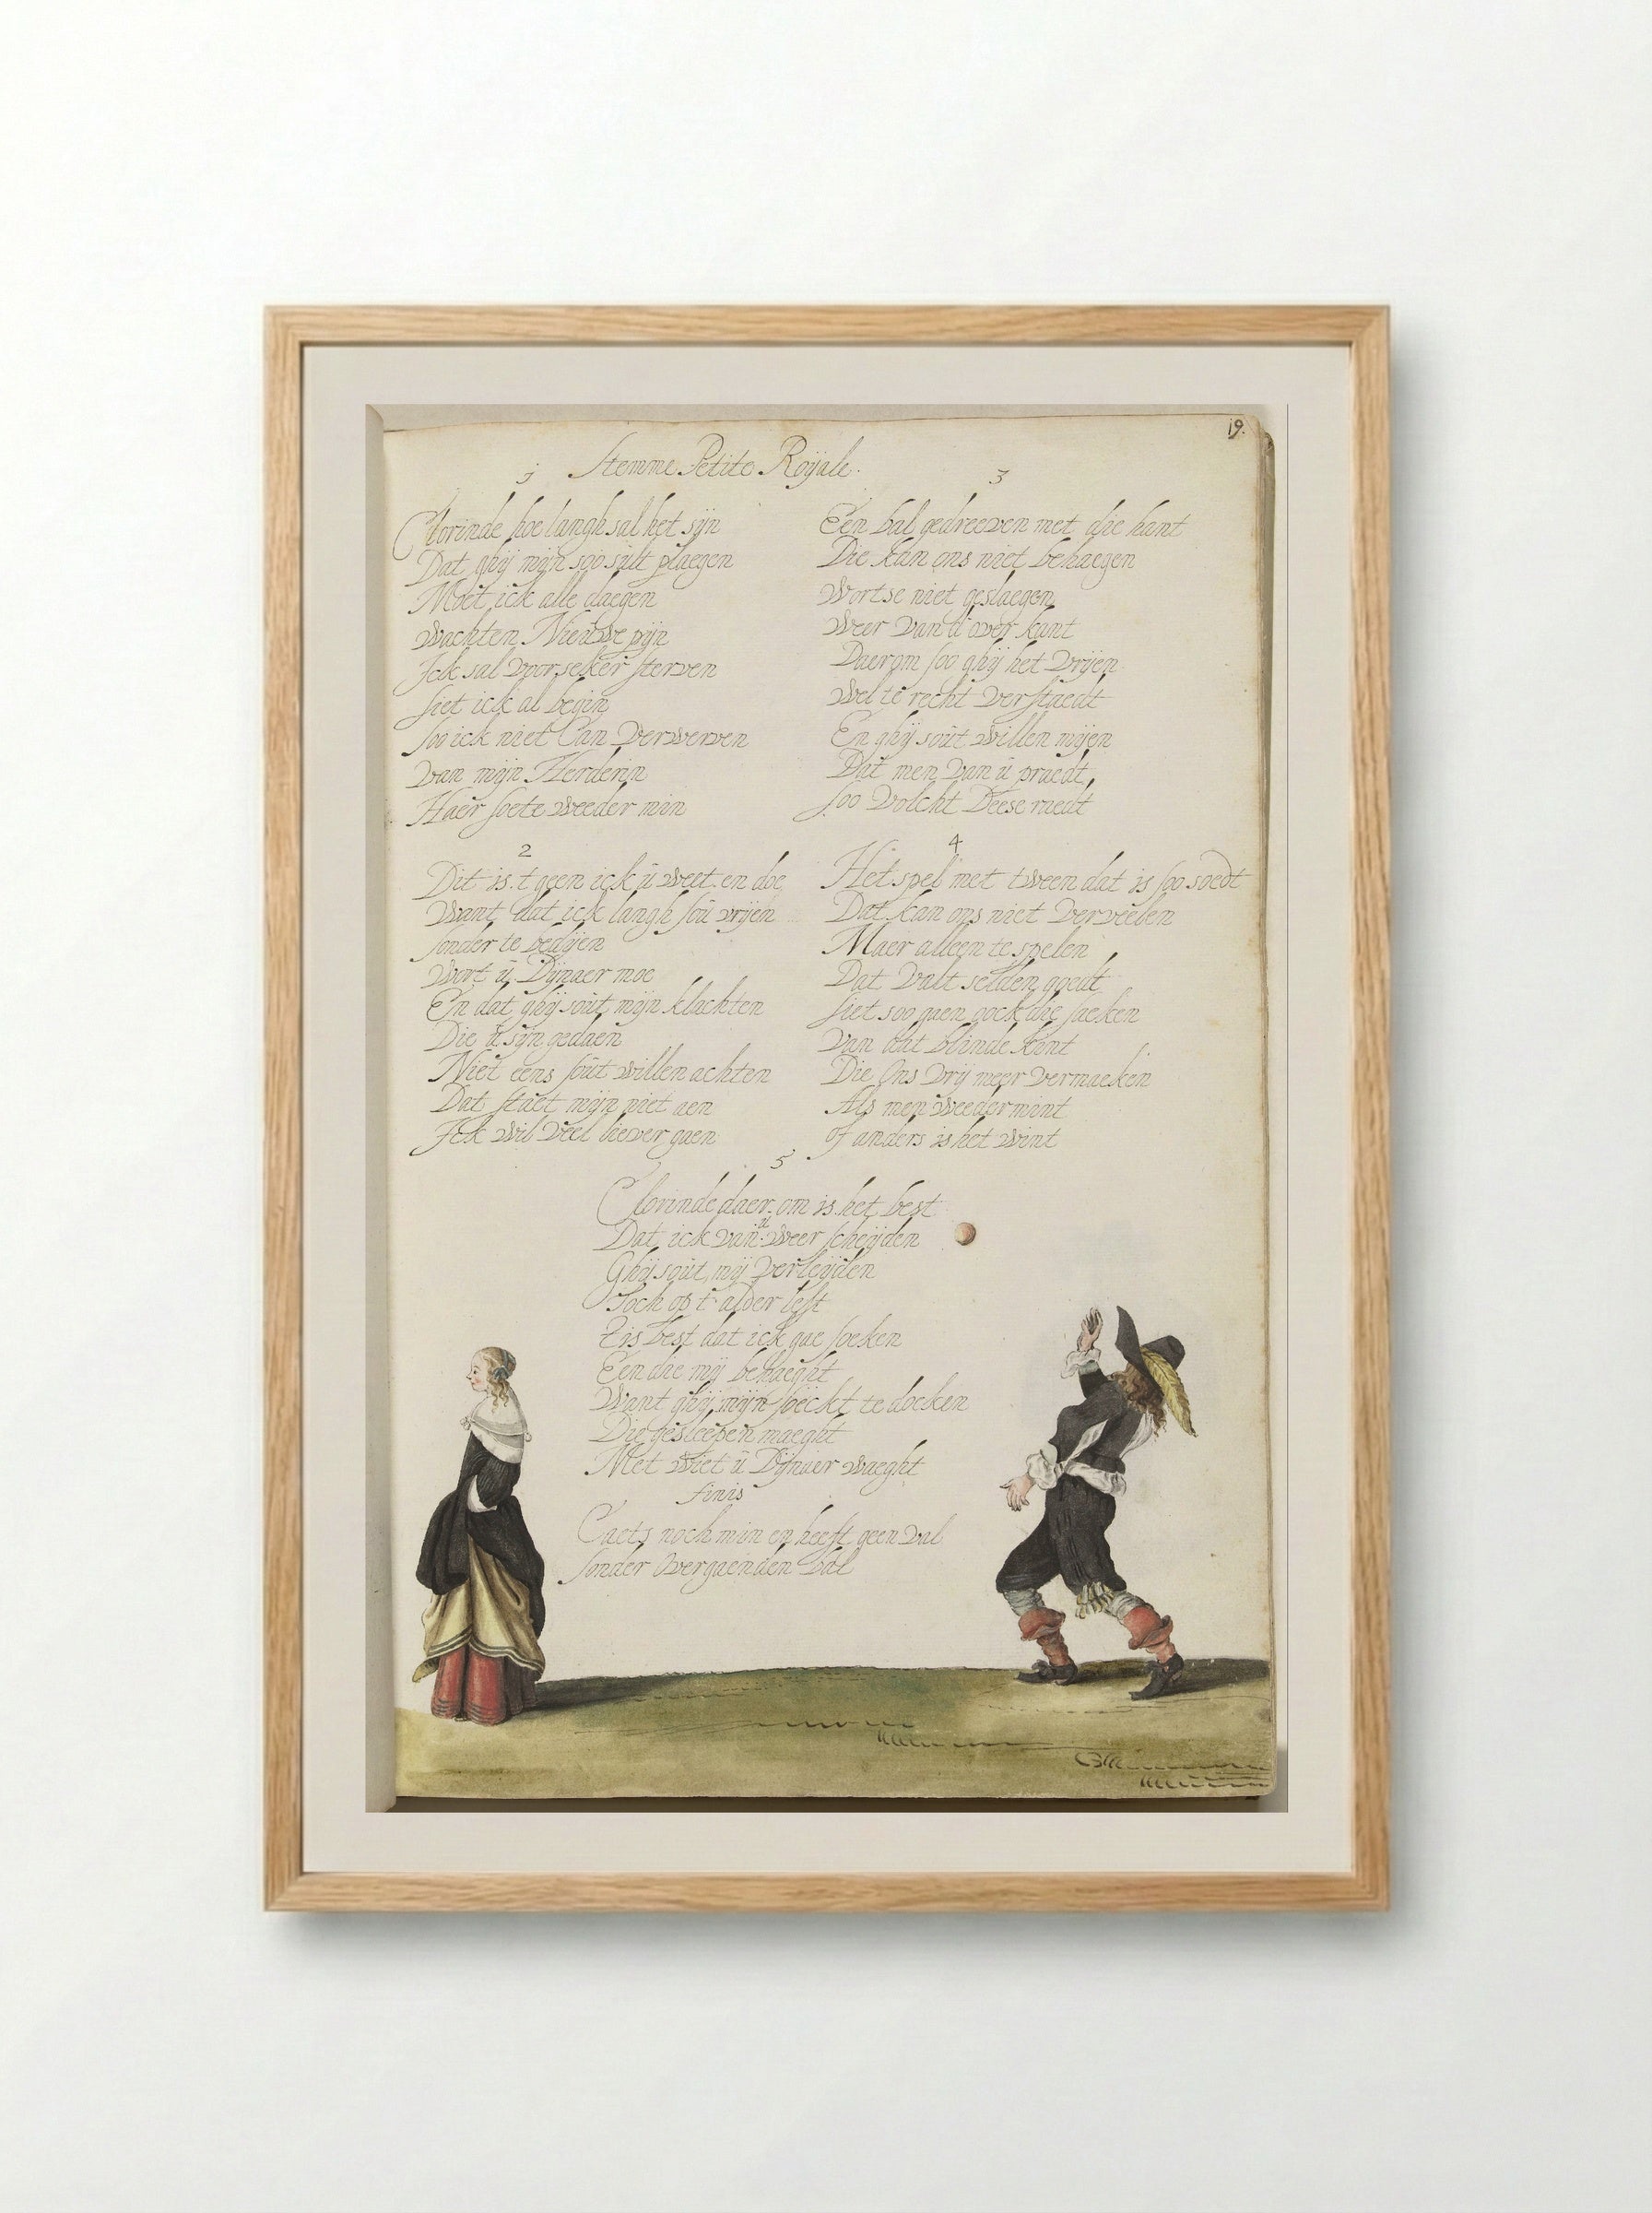 19.
Stemme Petite Royale.
1
Clorinde hoe langh sal het sijn
Dat ghij mijn soo sult plaegen
Moet ick alle daegen
wachten Nieuwe pijn
Ick sal voorseker sterven
siet ick al begin
soo ick niet Can verwerven
van mijn Herderin
Haer soete weeder min
2
Dit is t geen ick ú weet en doe
Want dat ick langh soú vrijen
sonder te bedijen
Wort ú Dijnaer moe
En dat ghij soút mijn klachten
Die ú sijn gedaen
Niet eens soút willen achten
Dat staet mijn niet aen
Ick wil veel liever gaen
3
Een bal gedreeven met die hant
Die kan ons niet behaegen
Wortse niet geslaegen
Weer van d over kant
Daerom soo ghij het vrijen
Wel te recht verstaedt
En ghij soút willen mijen
Dat men van ú praedt,
soo volcht Deese raedt
4
Het spel met tween dat is soo soedt
Dat kan ons niet verveelen
Maer alleen te spelen
Dat valt selden goedt
siet soo gaen oock die saeken
van dat blinde kint
Die Ons vrij meer vermaeken
Als men weedermint
of anders is het wint
5
Clorinde daer om is het best
Dat ick van ú weer scheijden
Ghij soút mij verleijden
Toch op t alder lest
Tis best dat ick gae soeken
Een die mij behaeght
Want ghij mijn soeckt te docken
Die gesleepen maeght
Met Wiet ú Dijnaer waeght
finis
Caets noch min en heeft geen val
sonder Overgaenden bal